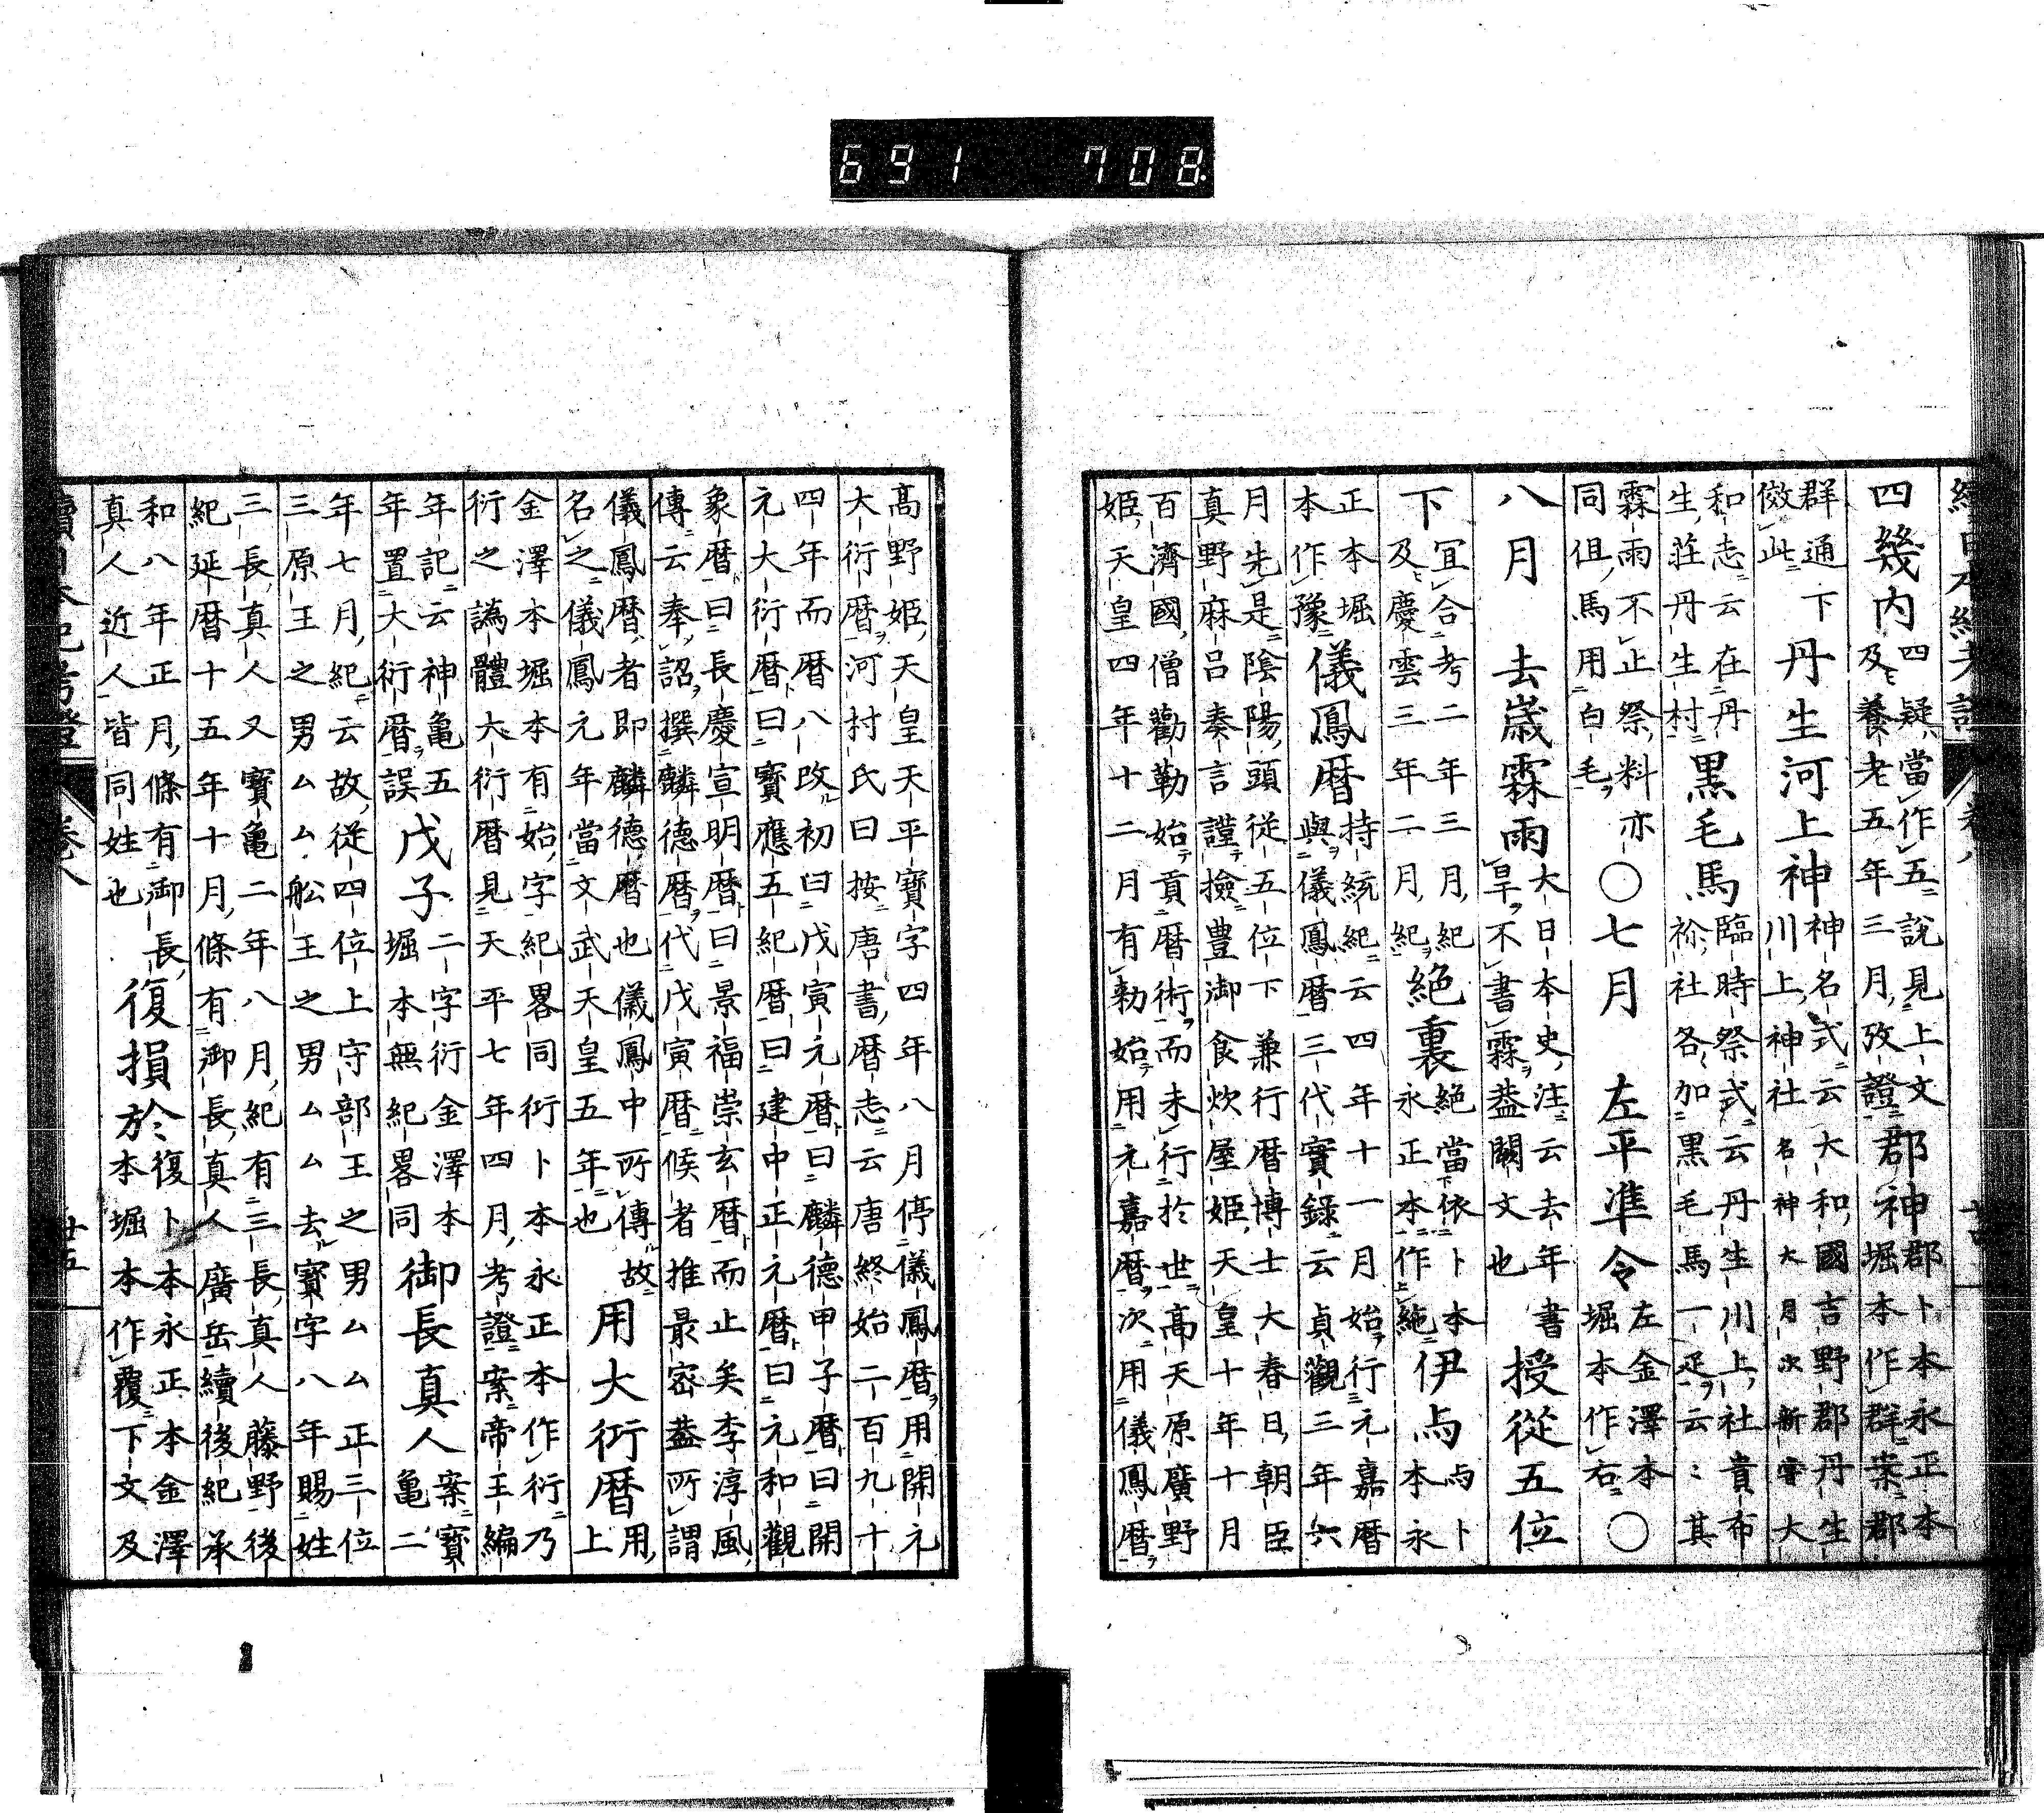 四幾内四疑當作五説見上文及養老五年三月攷證郡神郡卜本永正本堀本作群案郡
群通下倣此丹生河上神神名式云大和國吉野郡丹生川上神社名神大月次新甞大
和志云在丹生莊丹生村黑毛馬臨時祭式云丹生川上社貴布祢社各加黒毛馬一疋云〻其
霖雨不止祭料亦同但馬用白毛○七月 左平準令左金澤本堀本作右○
八月 去歳霖雨大日本史注云去年書旱不書霖葢闕文也授從五位
下冝合考二年三月紀及慶雲三年二月紀絶裏絶當依卜本永正本作絁伊与与卜本永
正本堀本作豫儀鳳暦持統紀云四年十一月始行元嘉暦與儀鳳暦三代實録云貞觀三年六
月先是陰陽頭從五位下兼行暦博士大春日朝臣
真野麻呂奏言謹撿豊御食炊屋姫天皇十年十月
百濟國僧勸勒始貢暦術而未行於世高天原廣野
姫天皇四年十二月有勅始用元嘉暦次用儀鳳暦
高野姫天皇天平寶字四年八月停儀鳳暦用開元
大衍暦河村氏曰按唐書暦志云唐終始二百九十
四年而暦八改初曰戊寅元暦曰麟德甲子暦曰開
元大衍暦曰寶應五紀暦曰建中正元暦曰元和觀
象暦曰長慶宣明暦曰景福崇玄暦而止矣李淳風
傳云奉詔撰麟德暦代戊寅暦候者推最密葢所謂
儀鳳暦者即麟德暦也儀鳳中所傳故名之儀鳳元年當文武天皇五年也用大衍暦用上
金澤本堀本有始字紀畧同衍卜本永正本作衍乃
衍之譌體大衍暦見天平七年四月考證案帝王編
年記云神龜五年置大衍暦誤戊子二字衍金澤本堀本無紀畧同御長真人案寶龜二
年七月紀云故從四位上守部王之男ムム正三位
三原王之男ムム舩王之男ムム去寶字八年賜姓
三長真人又寶龜二年八月紀有三長真人藤野後
紀延暦十五年十月條有御長真人廣岳續後紀承
和八年正月條有御長真人近人皆同姓也復損於復卜本永正本金澤本堀本作覆下文及
續日本紀考證 卷八 廿五
691 708